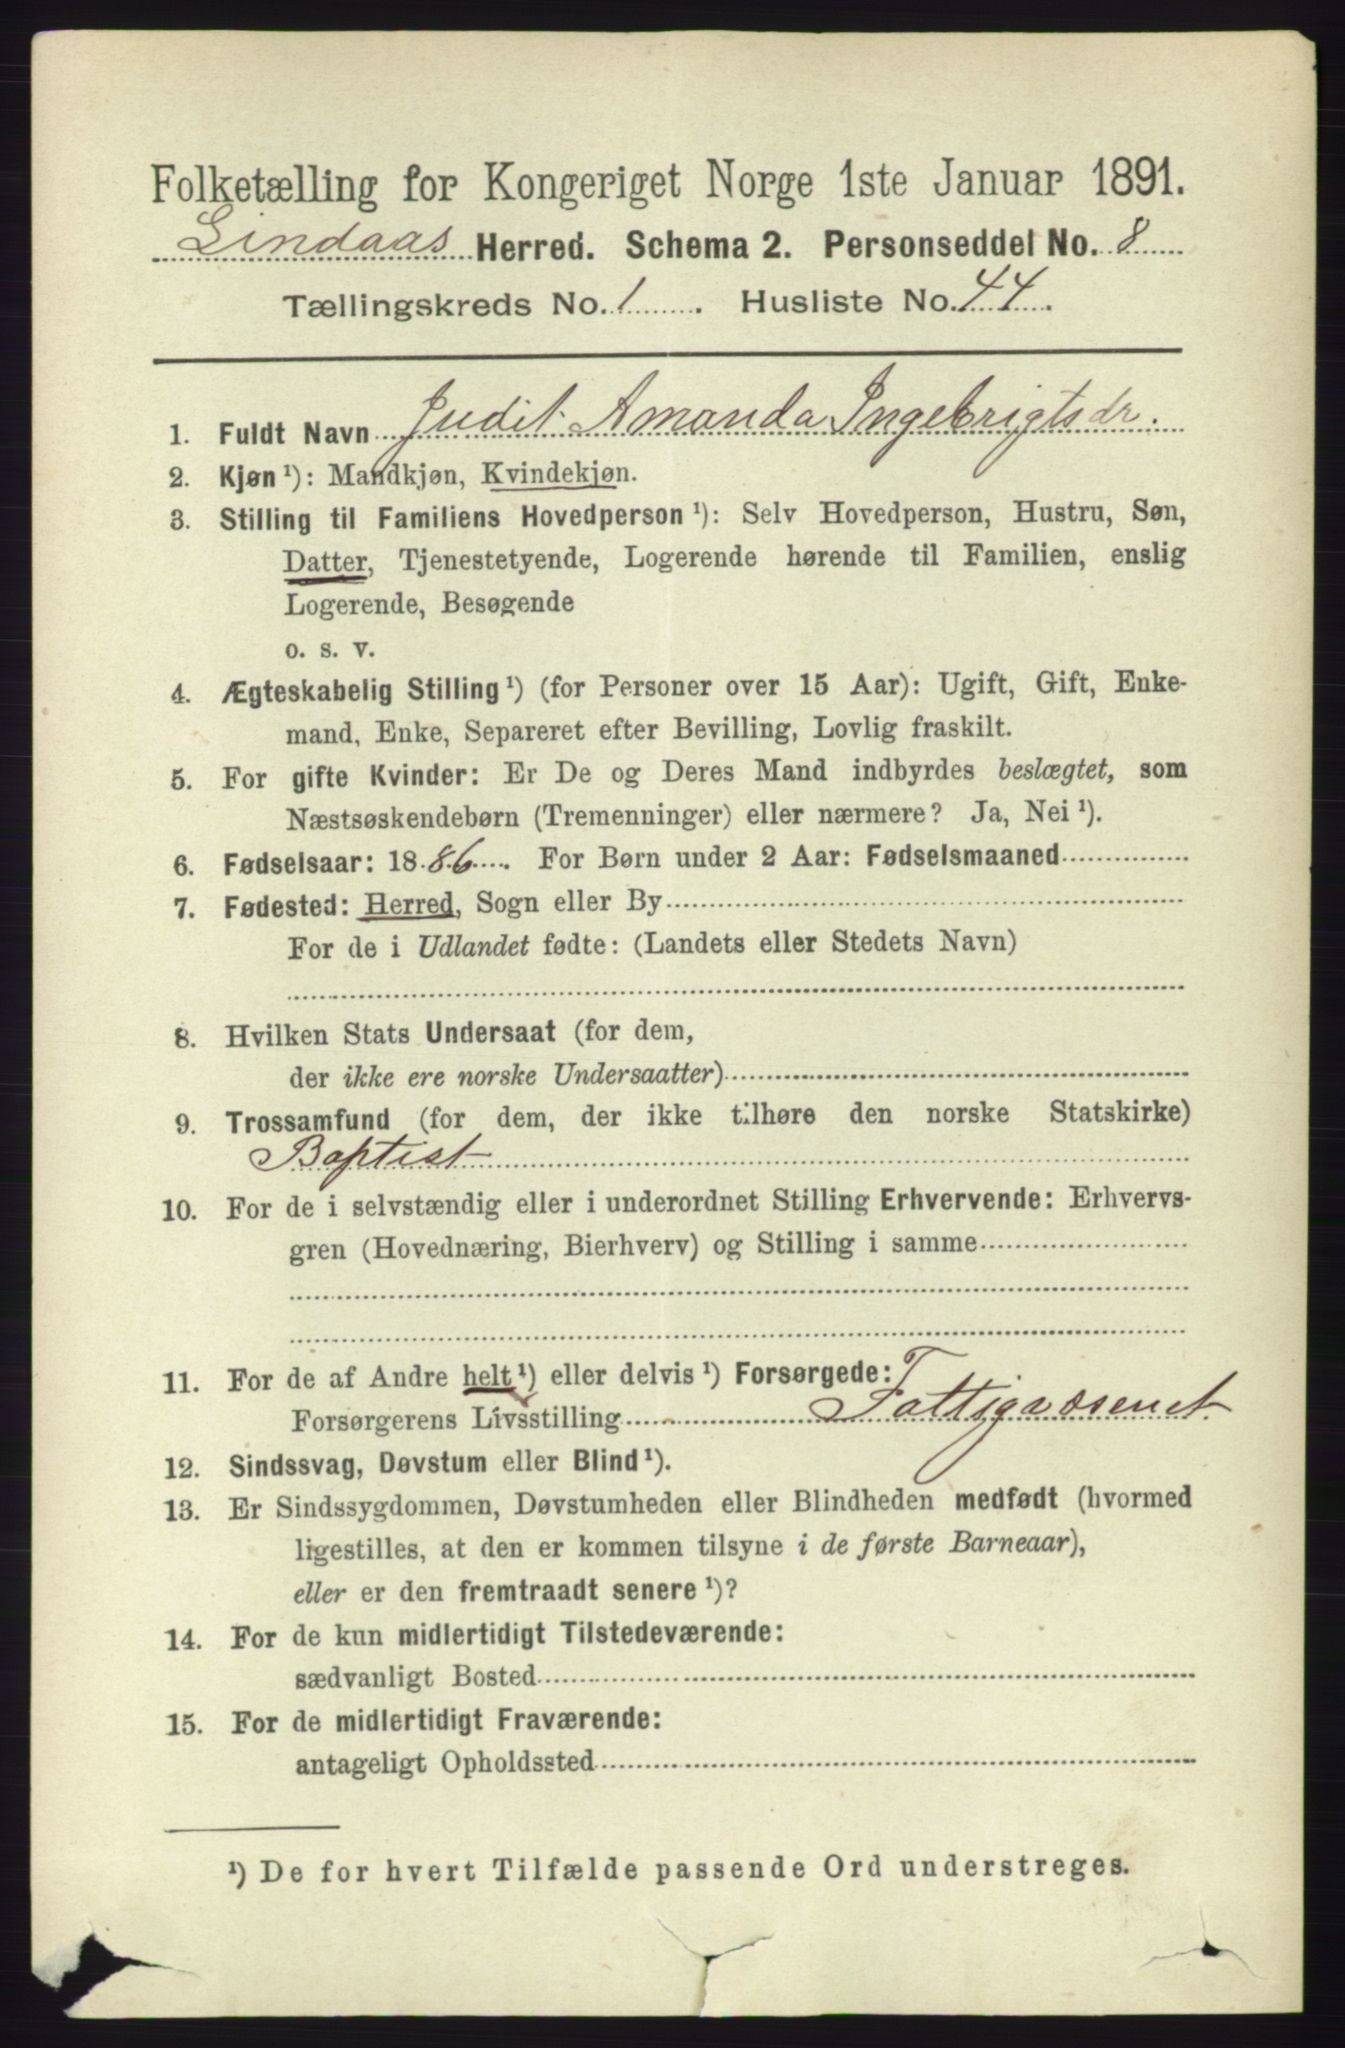 Folketælling for Kongeriget Norge 1ste Januar 1891.
Lindaas Herred. Schema 2. Personseddel No. 8
Tællingskreds No. 1. Husliste No. 44.
1. Fuldt Navn Judit Amanda Ingebrigtsdr.
2. Kjøn¹): Mandkjøn, Kvindekjøn.
3. Stilling til Familiens Hovedperson¹): Selv Hovedperson, Hustru, Søn,
Datter, Tjenestetyende, Logerende hørende til Familien, enslig
Logerende, Besøgende
o. s. v.
4. Ægteskabelig Stilling¹) (for Personer over 15 Aar): Ugift, Gift, Enke-
mand, Enke, Separeret efter Bevilling, Lovlig fraskilt.
5. For gifte Kvinder: Er De og Deres Mand indbyrdes beslægtet, som
Næstsøskendebørn (Tremenninger) eller nærmere? Ja, Nei¹).
6. Fødselsaar: 1886. For Børn under 2 Aar: Fødselsmaaned
7. Fødested: Herred, Sogn eller By
For de i Udlandet fødte: (Landets eller Stedets Navn)
8. Hvilken Stats Undersaat (for dem,
der ikke ere norske Undersaatter)
9. Trossamfund (for dem, der ikke tilhøre den norske Statskirke)
Baptist
10. For de i selvstændig eller i underordnet Stilling Erhvervende: Erhvervs-
gren (Hovednæring, Bierhverv) og Stilling i samme
11. For de af Andre helt¹) eller delvis¹) Forsørgede:
Forsørgerens Livsstilling Fattigvæsenet
12. Sindssvag, Døvstum eller Blind¹).
13. Er Sindssygdommen, Døvstumheden eller Blindheden medfødt (hvormed
ligestilles, at den er kommen tilsyne i de første Barneaar),
eller er den fremtraadt senere¹)?
14. For de kun midlertidigt Tilstedeværende:
sædvanligt Bosted
15. For de midlertidigt Fraværende:
antageligt Opholdssted
¹) De for hvert Tilfælde passende Ord understreges.